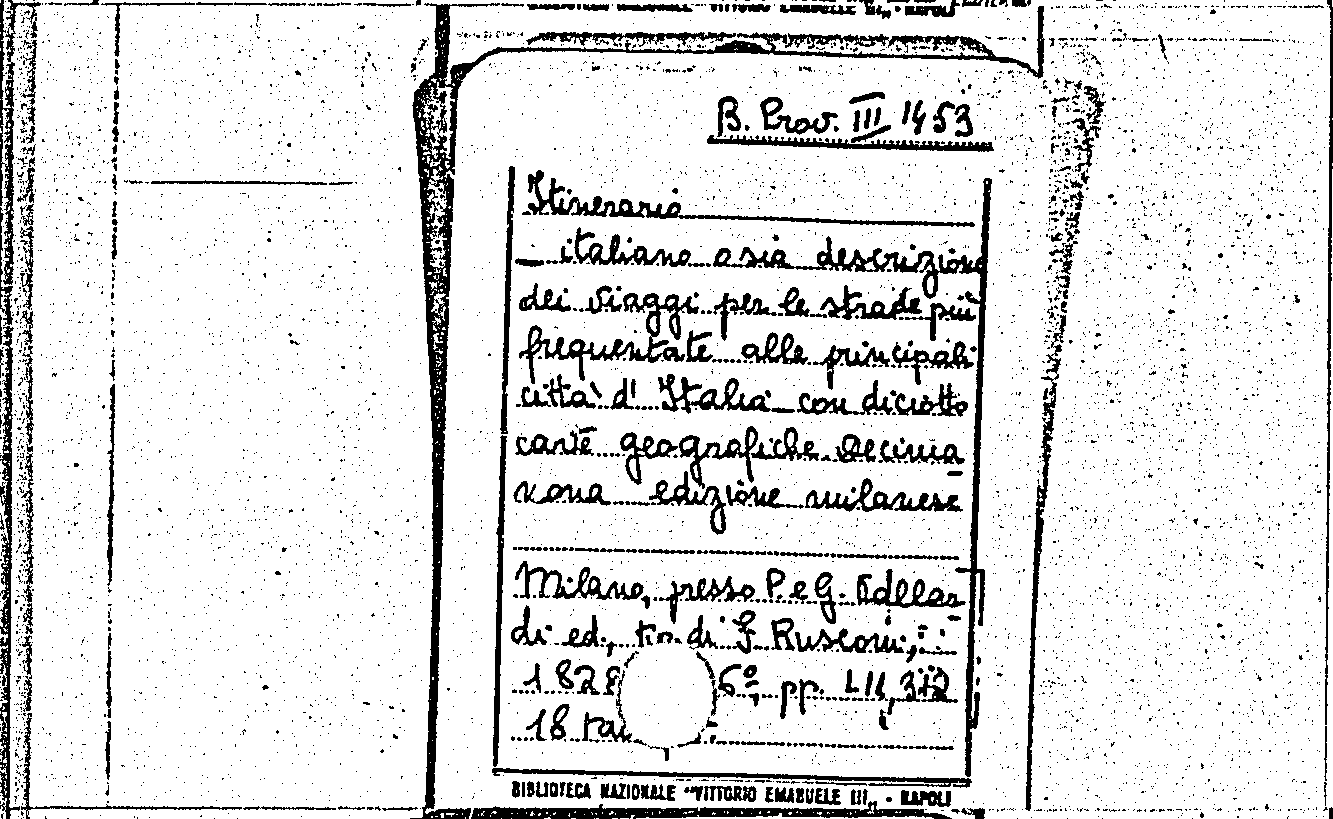 BIBLIOTECA NAZIONALE "VITTORIO EMANUELE III„ - NAPOLI
B. Prov. III 1453
Itinerario
_ italiano osia descrizione
dei viaggi per le strade più
frequentate alle principali
città d'Italia con diciotto
carte geografiche. Decima
nona edizione milanese
Milano, presso P. e G. Vallar
di ed., tip. di F. Rusconi,
1828 6º, pp. LII, 312
18
BIBLIOTECA NAZIONALE "VITTORIO EMANUELE III„ - NAPOLI